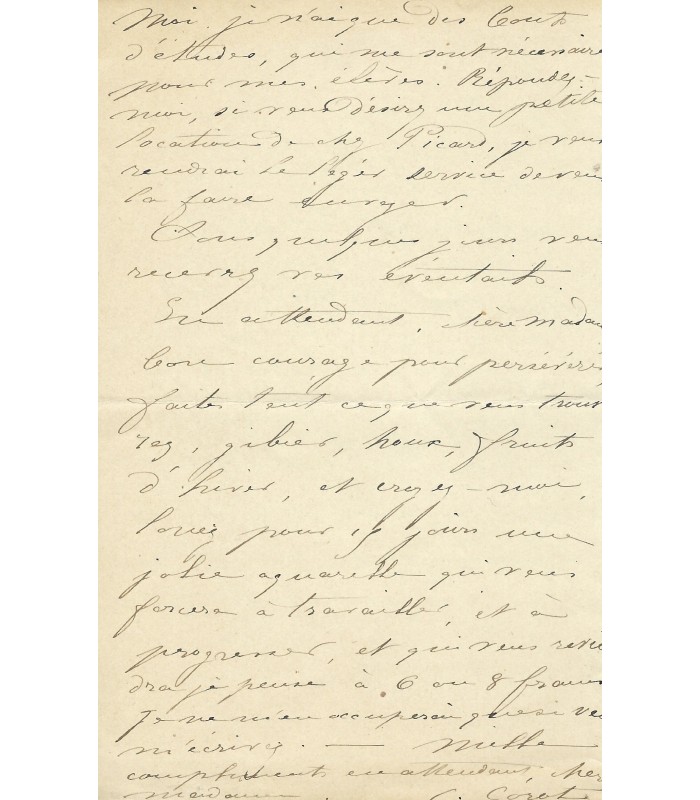 Moi, je n'ai que des
d'études, qui me sont nécessaire
pour mes élèves. Répondez-
moi, si vous désirez une petite
location de chez Picard, je vous
rendrai le léger service de vous
la faire envoyer.
Sous quelques jours vou
recevrez vos éventails.
En attendant, chère Madam
bon courage pour persévérer,
faites tout ce que vous trouv
rez, gibier, houx, fruits
d'hiver, et croyez-moi,
louez pour 15 jours une
jolie aquarelle qui vous
forcera à travailler, et à
progresser, et qui vous revi
dra je pense à 6 ou 8 francs
Je ne m'en occuperai que si vou
m'écrivez. — Mille
compliments en attendant, cher
madame